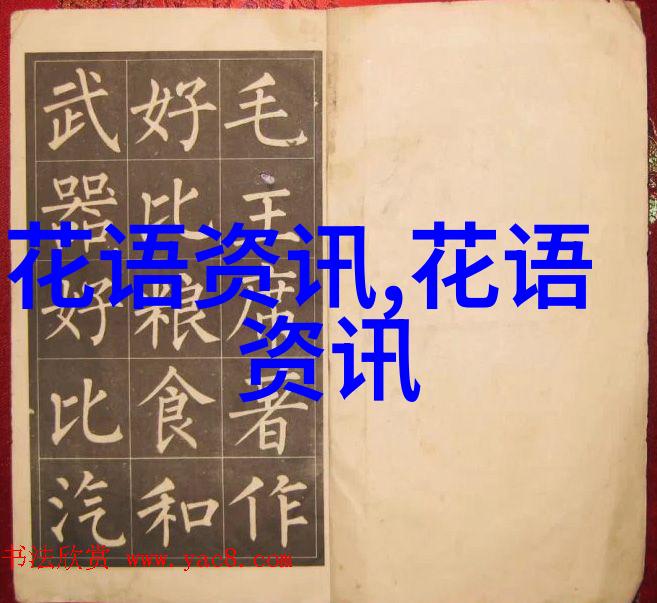 毛主席著作
好比粮食和
武器好比汽
花语资讯,花语
资讯
书法欣赏 www.yac8.com